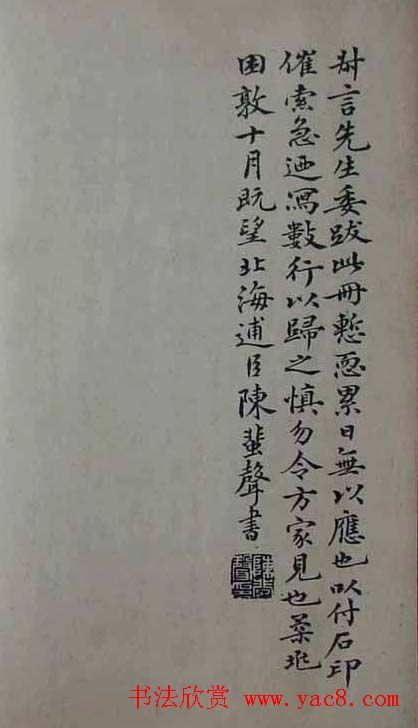 言先生委跋此冊慙恧累日無以應也以付石印
催索急迺寫數行以歸之慎勿令方家見也葇兆
困敦十月既望北海逋臣陳蜚聲書
书法欣赏 www.yac8.com